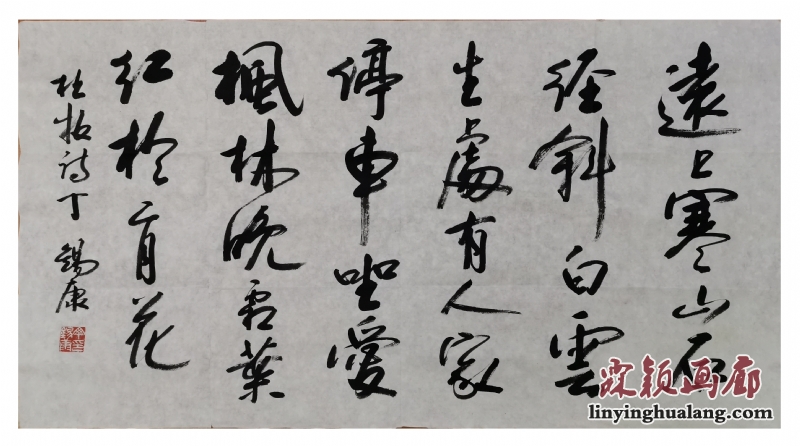 遠上寒山石
径斜白雲
生處有人家
停車坐愛
楓林晚霜葉
红於二月花
杜牧诗丁錫康
霖颖画廊
linyinghualang.com